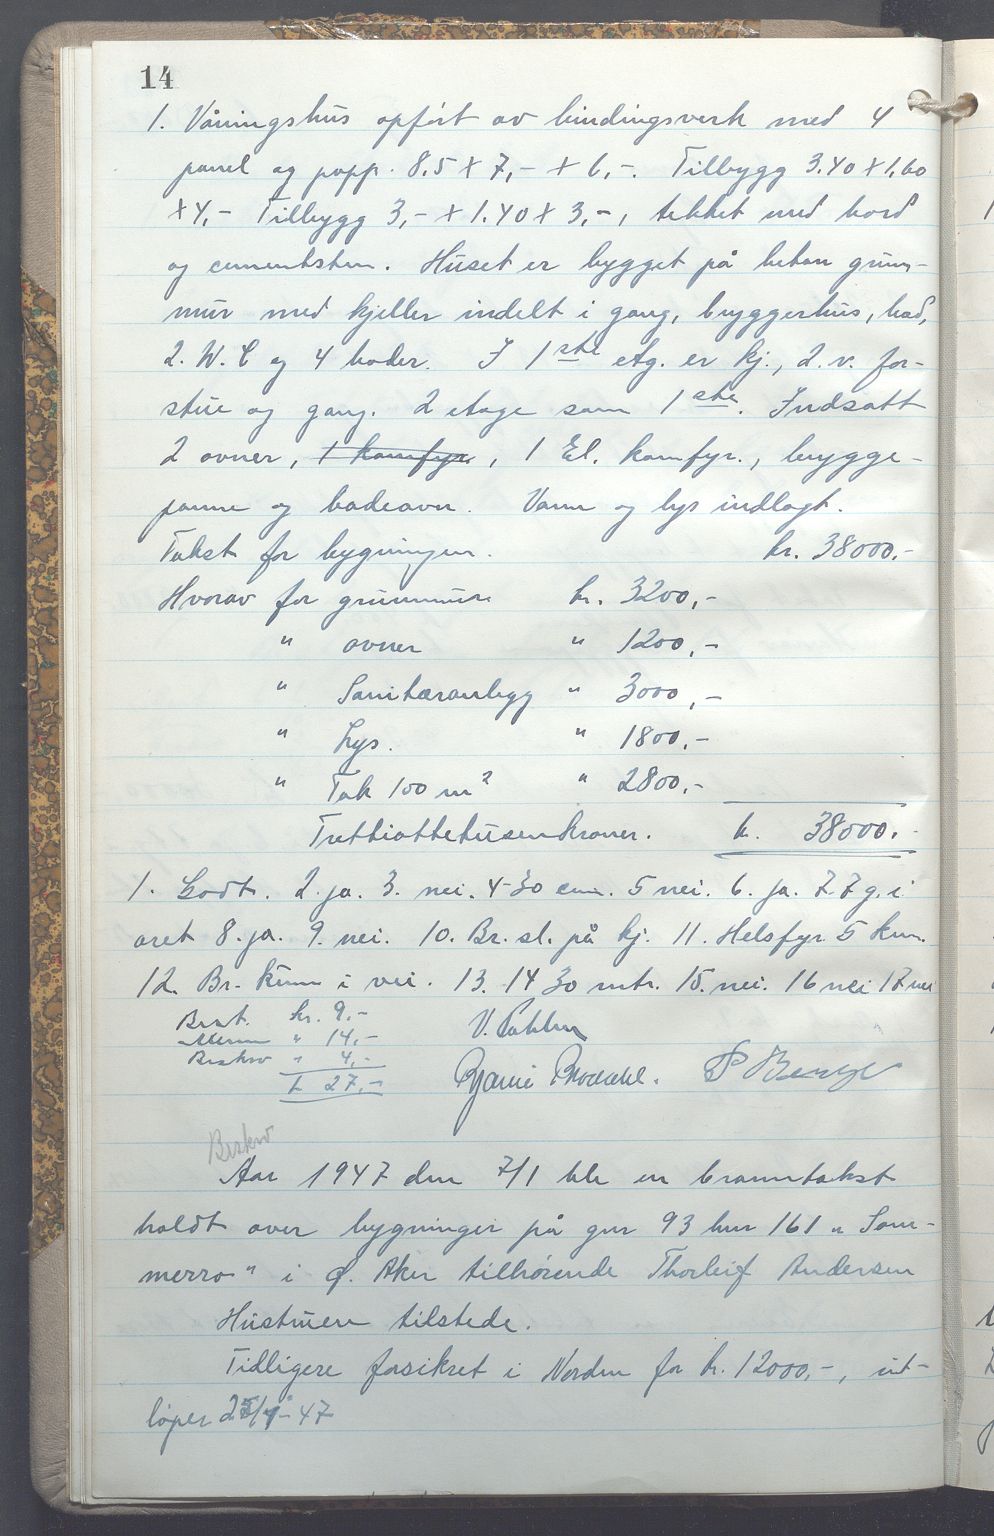 14
1. Våningshus opført av bindingsverk med 4
panel og papp. 8.5 x 7,- x 6,-. Tilbygg 3.40 x 1,60
x 4,- Tilbygg 3,- x 1.40 x 3,-, tekket med bord
og cementsten. Huset er bygget på beton grun-
mur med kjeller indelt i gang, bryggerhus, bad,
2. W. C og 4 boder. I 1ste etg. er kj., 2. v. for-
stue og gang. 2 etage som 1ste. Indsatt
2 ovner, 1 komfyr, 1 El. komfyr., brygge-
panne og badeovn. Vann og lys indlagt.
Takst for bygningen. kr. 38000.-
Hvorav for grunnmure kr. 3200,-
" ovner " 1200,-
" Sanitæranlegg " 3000,-
" Lys. " 1800.-
" Tak 100 m² " 2800.-
Trettiottetusenkroner. kr. 38000.-
1. Godt. 2. ja. 3. nei. 4 30 cm. 5 nei. 6. ja. 7. 7 g. i
året 8. ja. 9. nei. 10. Br. sl. på kj. 11. Helsfyr 5 km.
12. Br. kum i vei. 13. 14 30 mtr. 15. nei. 16 nei 17 nei
Best. kr. 9.-
" 14,-
Beskrv " 4,-
k 27,-
Bjarne P Berge
Beskrv
Aar 1947 den 7/1 ble en branntakst
holdt over bygninger på gnr 93 bnr 161 "Som-
merro" i Ø. Aker tilhørende Thorleif Andersen
Hustruen tilstede.
Tidligere forsikret i Norden for kr. 12000,-, ut-
løper 25/1-47